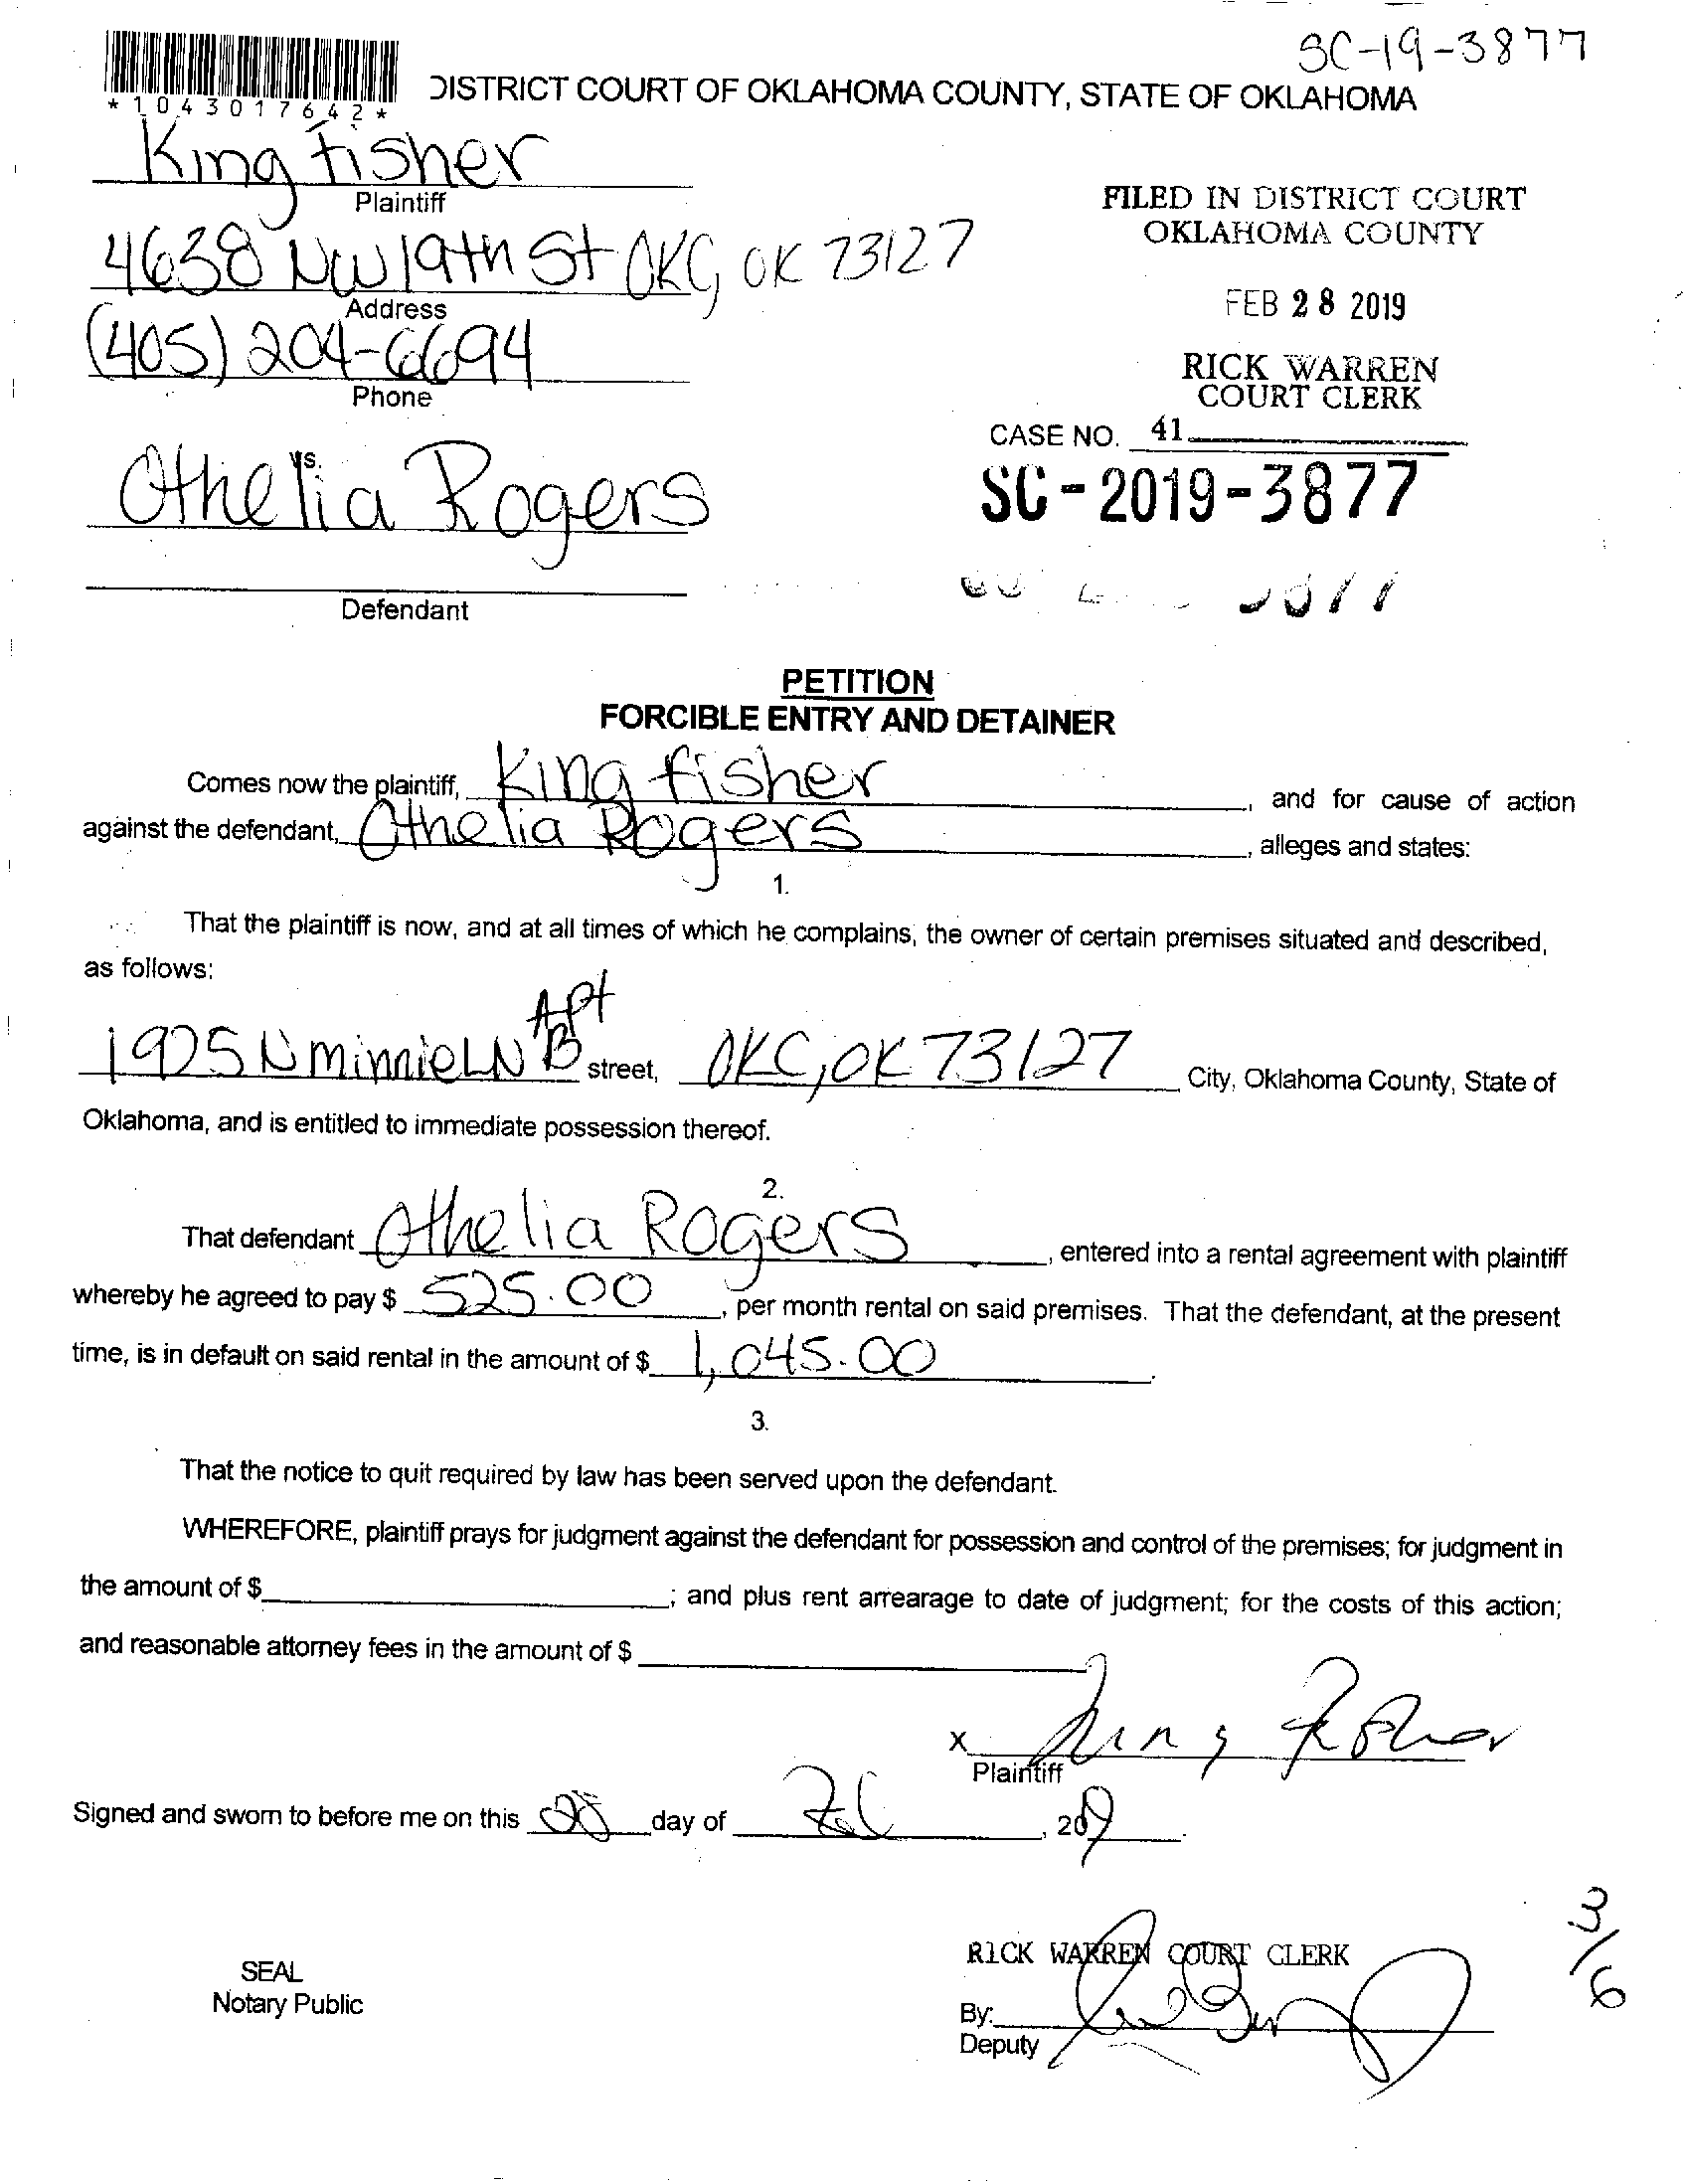 SC-19-3877
DISTRICT COURT OF OKLAHOMA COUNTY, STATE OF OKLAHOMA
*1043017642*
King fisher
Plaintiff
FILED IN DISTRICT COURT
OKLAHOMA COUNTY
4638 NW 19th St OKC, OK 73127
Address
FEB 28 2019
(405) 204-6694
Phone
RICK WARREN
COURT CLERK
CASE NO. 41
vs.
Othelia Rogers
SC-2019-3877
Defendant
PETITION
FORCIBLE ENTRY AND DETAINER
Comes now the plaintiff, King fisher, and for cause of action
against the defendant, Othelia Rogers, alleges and states:
1.
That the plaintiff is now, and at all times of which he complains, the owner of certain premises situated and described,
as follows:
Apt
1925 N Minnie LN B street, OKC, OK 73127 City, Oklahoma County, State of
Oklahoma, and is entitled to immediate possession thereof.
2.
That defendant Othelia Rogers, entered into a rental agreement with plaintiff
whereby he agreed to pay $ 525.00, per month rental on said premises. That the defendant, at the present
time, is in default on said rental in the amount of $ 1,045.00.
3.
That the notice to quit required by law has been served upon the defendant.
WHEREFORE, plaintiff prays for judgment against the defendant for possession and control of the premises; for judgment in
the amount of $ ; and plus rent arrearage to date of judgment; for the costs of this action;
and reasonable attorney fees in the amount of $
x King Fisher
Plaintiff
Signed and sworn to before me on this 28 day of Feb, 2019.
3/6
RICK WARREN COURT CLERK
SEAL
Notary Public
By:
Deputy